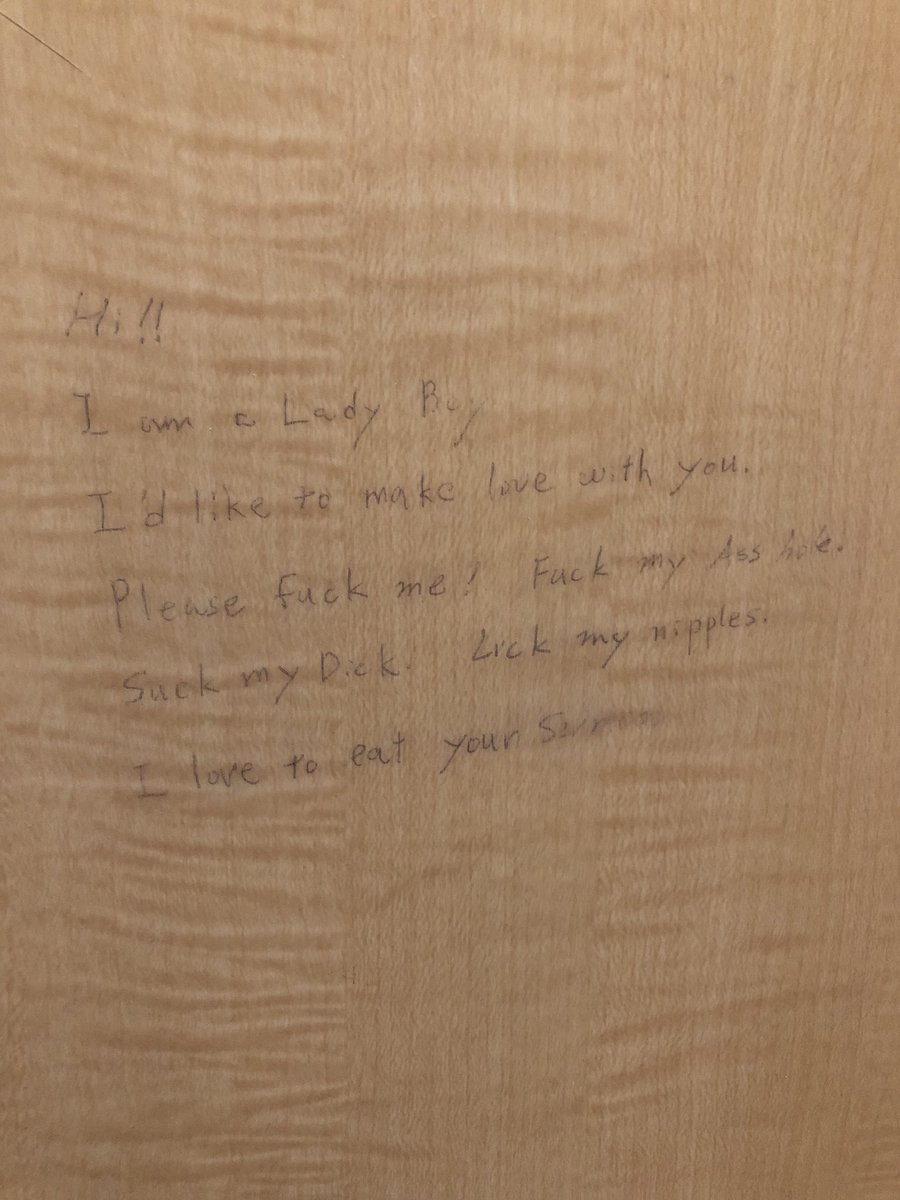 Hi!!
I am a Lady Boy
I'd like to make love with you.
Please fuck me! Fuck my Ass hole.
Suck my Dick. Lick my nipples.
I love to eat your